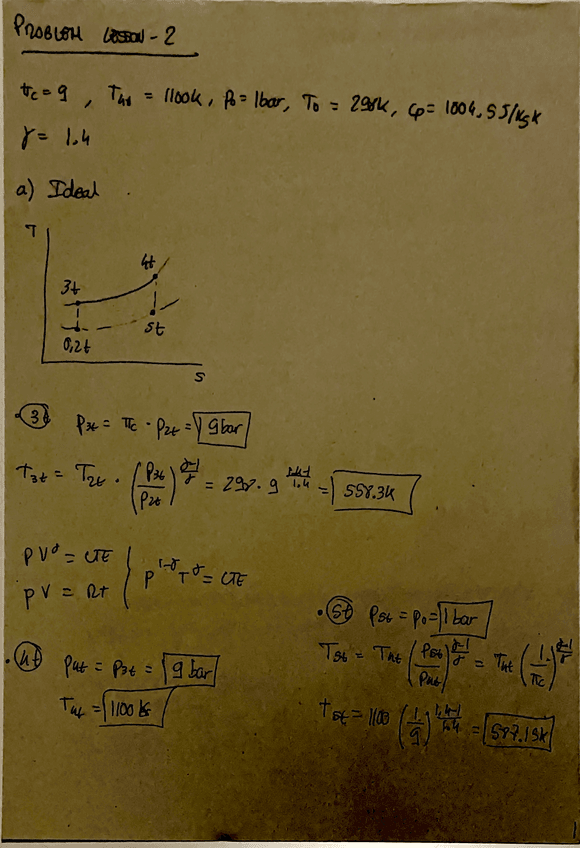 PROBLEM LESSON - 2
πc = 9 , T4t = 1100K, p0 = 1bar, T0 = 298K, cp = 1004.5 J/kgK
γ = 1.4
a) Ideal
T
4t
3t
5t
0,2t
S
• 3t p3t = πc · p2t = 9bar
T3t = T2t · (p3t/p2t)^(γ-1/γ) = 298 · 9^(1.4-1/1.4) = 558.3K
pV^γ = CTE
pV = RT
p^(1-γ) T^γ = CTE
• 4t p4t = p3t = 9 bar
T4t = 1100 K
• 5t p5t = p0 = 1 bar
T5t = T4t (p5t/p4t)^(γ-1/γ) = T4t (1/πc)^(γ-1/γ)
T5t = 1100 (1/9)^(1.4-1/1.4) = 587.15K
1